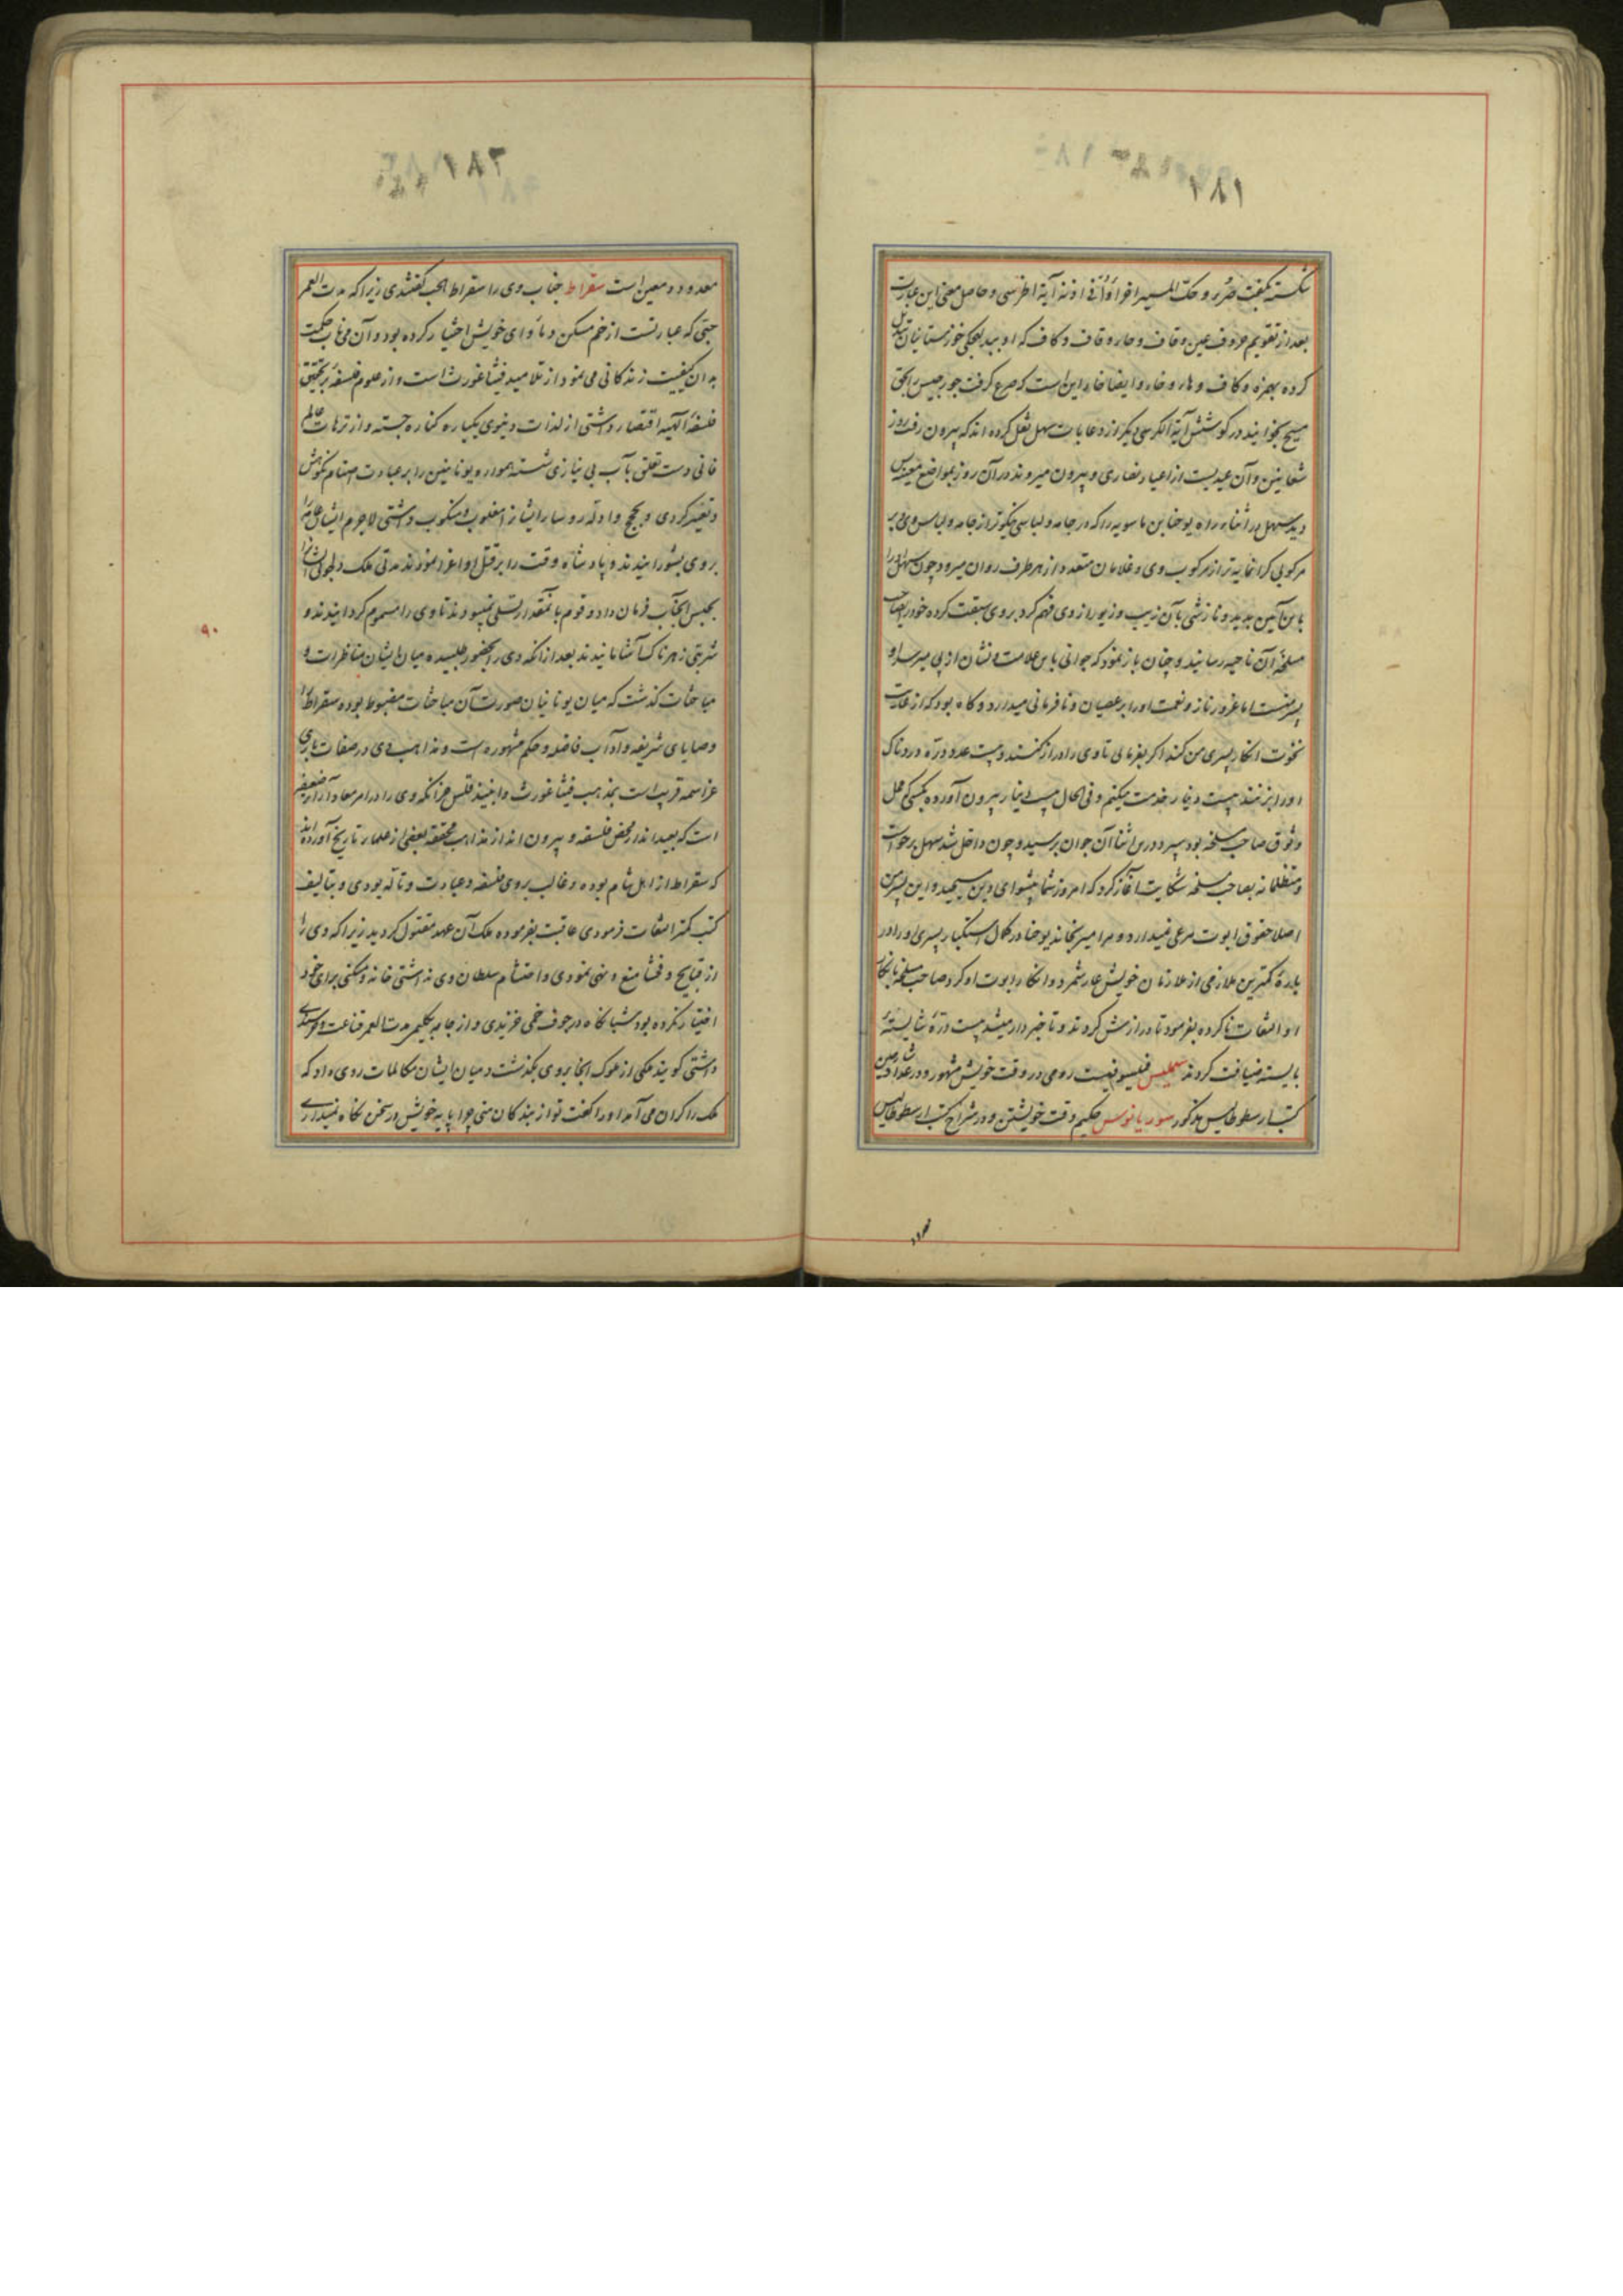 ۱۸۱
شکسته بگفت صُرَر و حکّ المسیر اخرا وأنی اذنه آیة اطرسی و حاصل معنی این عبارت
بعد از تقویم حروف عین و قاف و حاء و قاف و کاف که او ببد لعجکی خوزستانیان تبدیل
کرده بهمزه و کاف و هاء و خاء و ایضا خاء این است که صرع گرفت جورجیس را بحق
مسیح بخوانید در گوشش آیة الکرسی دیگر از دعابات سهل نقل کرده اند که بیرون رفت روز
شعانین و آن عیدیست از اعیاد نصاری و بیرون میروند در آن روز بمواضع معینه پس
دید سهل در اثناء راه یوحنا بن ماسویه را که در جامه و لباسی نیکوتر از جامه و لباس وی بر
مرکوبی گرانمایه تر از مرکوب وی و غلامان متعدد از هر طرف روان میرود چون سهل او را
باین آیین بدید و نازشی بآن زیب و زیور از وی فهم کرد بر وی سبقت کرده خود را بصاحب
مسلحهٔ آن ناحیه رسانید و چنان باز نمود که جوانی باین علامت و نشان از پی میرسد او
پسر منست اما غرور ناز و نعمت او را بر عصیان و نافرمانی میدارد و گاه بود که از غایت
نخوت انکار پسری من کند اگر بفرمائی تا وی را دراز کنند و بیست عدد درّه دردناک
او را بزنند بیست دینار خدمت میکنم و فی الحال بیست دینار بیرون آورده بکسی که محل
وثوق صاحب مسلحه بود سپرد در این اثنا آن جوان برسید و چون داخل شد سهل برخواست
و متظلمانه بصاحب مسلحه شکایت آغاز کرد که امروز شما پیشوای دین مسیحید و این پسر من
اصلا حقوق ابوت مرعی نمیدارد و مرا میرنجاند یوحنا در کمال استکبار پسری او را در
بارهٔ کمترین ملازمی از ملازمان خویش عار شمرد و انکار ابوت او کرد صاحب مسلحه بانکار
او التفات ناکرده بفرمود تا درازش کردند و تا خبردار میشد بیست درّهٔ شایسته
بایسته ضیافت کردند سملیس فیلسوفیست رومی در وقت خویش مشهور و در عداد شارحین
کتب ارسطوطالیس مذکور سوریانوس حکیم وقت خویشتن و در شراح کتب ارسطوطالیس
معدود
۱۸۲
معدود و معین است سقراط جناب وی را سقراط الحب گفتندی زیرا که مدت العمر
حبّی که عبارتست از خم مسکن و مأوای خویش اختیار کرده بود و آن مرتاب حکمت
بدان کیفیت زندگانی می نمود از تلامیذ فیثاغورث است و از علوم فلسفه بر تحقیق
فلسفهٔ الهیه اقتصار داشتی از لذات دنیوی یکباره کناره جسته و از ترهات عالم
فانی دست تعلق بآب بی نیازی شسته هموار و یونانیین را بر عبادت اصنام نکوهش
و تعییر کردی و بحجج و ادله رؤسا را ایشان را مغلوب و منکوب داشتی لاجرم ایشان عامه را
بر وی بشورانیدند و پادشاه وقت را بر قتل او اغرا نمودند مدتی ملک دلجوئی ایشان را
بحبس آنجناب فرمان داد و قوم با نمقدار تسلی نمیبودند تا وی را مسموم گردانیدند و
شربتی زهرناک آشامانیدند بعد از آنکه وی را بحضور طلبیده میان ایشان مناظرات و
مباحثات گذشت که میان یونانیان صورت آن مباحثات مضبوط بوده سقراط را
وصایای شریفه و آداب فاضله و حکم مشهوره است و مذاهب وی در صفات باری
عزاسمه قریب است بمذهب فیثاغورث و ابنیذقلس جز آنکه وی را در امر معاد آراء ضعیفه
است که بعیداند از محض فلسفه و بیرون اند از مذاهب محققه بعضی از علماء تاریخ آورده اند
که سقراط از اهل شام بوده و غالب بر وی فلسفه و عبادت و تأله بودی و بتألیف
کتب کمتر التفات فرمودی عاقبت بفرموده ملک آن عهد مقتول گردید زیرا که وی را
از قبایح و فحشا منع و نهی نمودی و احتشام سلطان وی نداشتی خانه و مسکنی برای خود
اختیار نکرده بود شبانگاه در جوف خمی خزیدی و از جامه بگلیمی مدت العمر قناعت و خرسندی
داشتی گویند ملکی از ملوک آنجا بر وی بگذشت و میان ایشان مکالمات روی داد که
ملک را گران می آمد او را گفت تو از بندگان منی چرا پایهٔ خویش در سخن نگاه نمیداری
۹۰